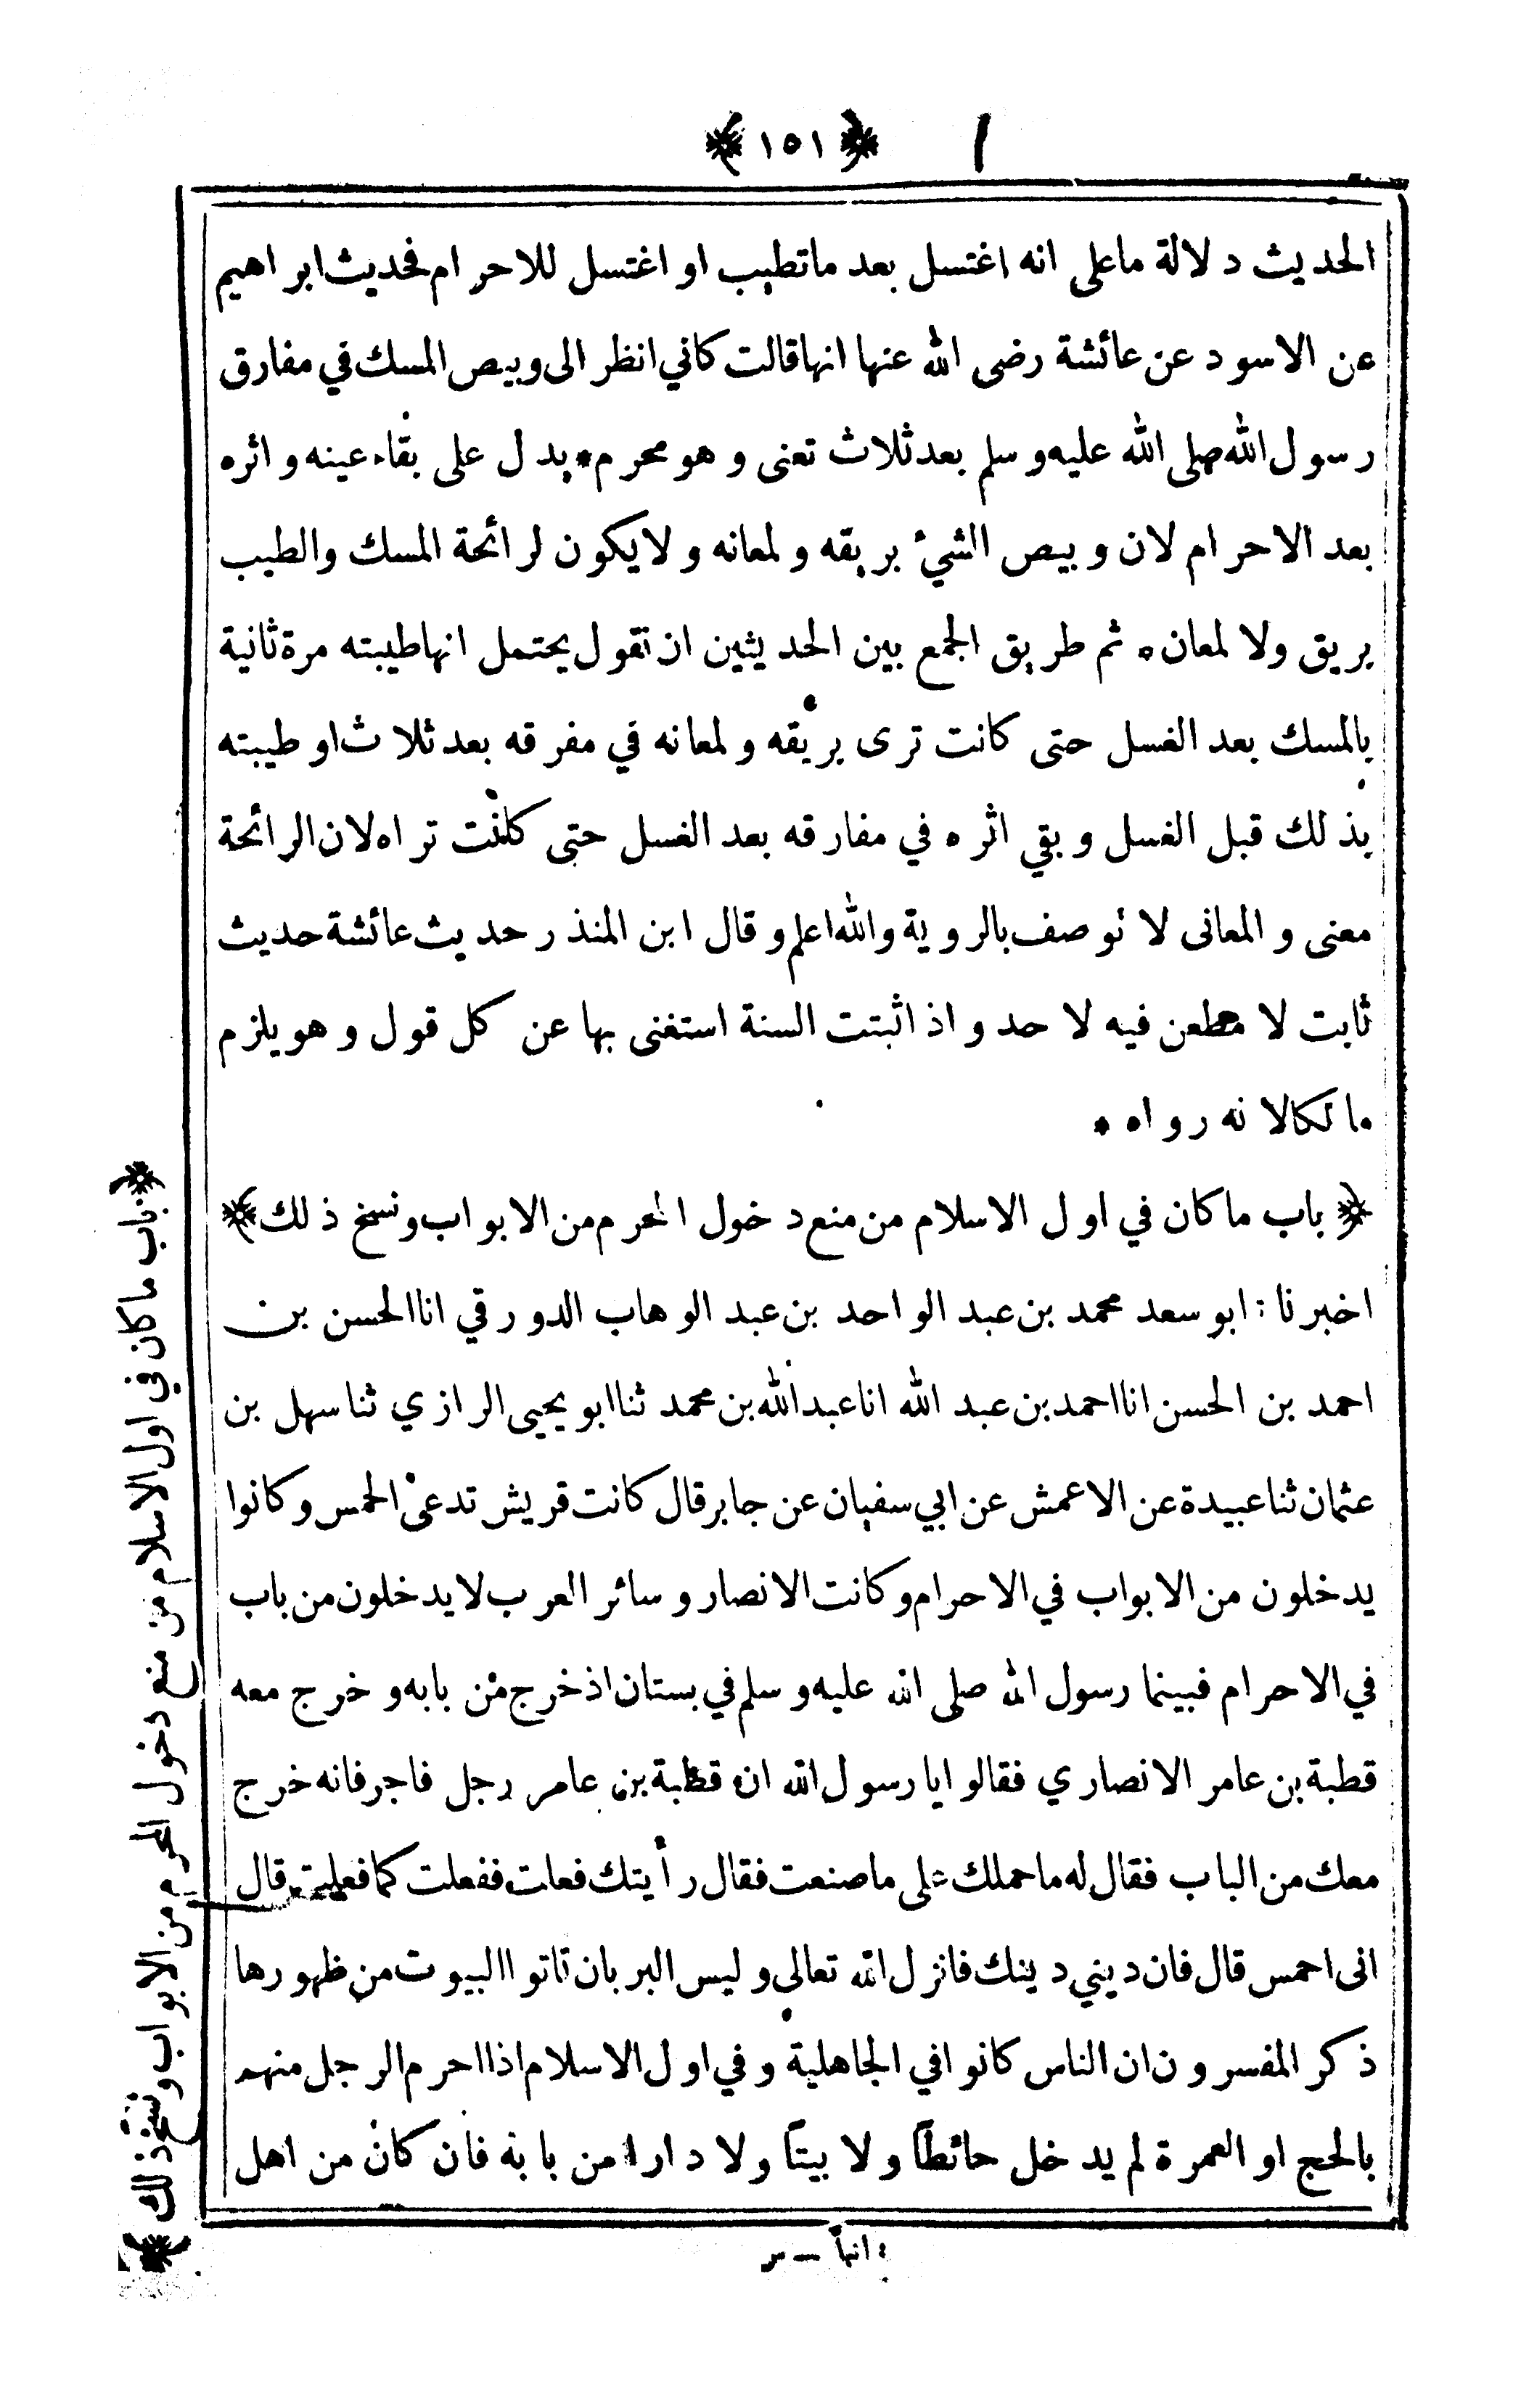 ﴿ ١٥١ ﴾
الحديث دلالة ما على انه اغتسل بعد ما تطيب او اغتسل للاحرام فحديث ابراهيم
عن الاسود عن عائشة رضى الله عنها انها قالت كاني انظر الى وبيص المسك في مفارق
رسول الله صلى الله عليه وسلم بعد ثلاث تعنى وهو محرم * يدل على بقاء عينه واثره
بعد الاحرام لان وبيص الشيء بريقه ولمعانه ولا يكون لرائحة المسك والطيب
بريق ولا لمعان * ثم طريق الجمع بين الحديثين ان نقول يحتمل انها طيبته مرة ثانية
بالمسك بعد الغسل حتى كانت ترى بريقه ولمعانه في مفرقه بعد ثلاث او طيبته
بذلك قبل الغسل وبقي اثره في مفارقه بعد الغسل حتى كانت تراه لان الرائحة
معنى والمعانى لا توصف بالروية والله اعلم وقال ابن المنذر حديث عائشة حديث
ثابت لا مطعن فيه لاحد واذا ثبتت السنة استغنى بها عن كل قول وهو يلزم
مالكا لانه رواه *
﴿ باب ما كان في اول الاسلام من منع دخول المحرم من الابواب ونسخ ذلك ﴾
اخبرنا : ابو سعد محمد بن عبد الواحد بن عبد الوهاب الدورقي انا الحسن بن
احمد بن الحسن انا احمد بن عبد الله انا عبد الله بن محمد ثنا ابو يحيى الرازي ثنا سهل بن
عثمان ثنا عبيدة عن الاعمش عن ابي سفيان عن جابر قال كانت قريش تدعى الحمس وكانوا
يدخلون من الابواب في الاحرام وكانت الانصار وسائر العرب لا يدخلون من باب
في الاحرام فبينما رسول الله صلى الله عليه وسلم في بستان اذ خرج من بابه وخرج معه
قطبة بن عامر الانصاري فقالوا يا رسول الله ان قطبة بن عامر رجل فاجر فانه خرج
معك من الباب فقال له ما حملك على ما صنعت فقال رأيتك فعلت ففعلت كما فعلت قال
انى احمس قال فان ديني دينك فانزل الله تعالى وليس البر بان تاتوا البيوت من ظهورها
ذكر المفسرون ان الناس كانوا في الجاهلية وفي اول الاسلام اذا احرم الرجل منهم
بالحج او العمرة لم يدخل حائطاً ولا بيتاً ولا دارا من بابه فان كان من اهل
﴿ باب ما كان في اول الاسلام من منع دخول المحرم من الابواب ونسخ ذلك ﴾